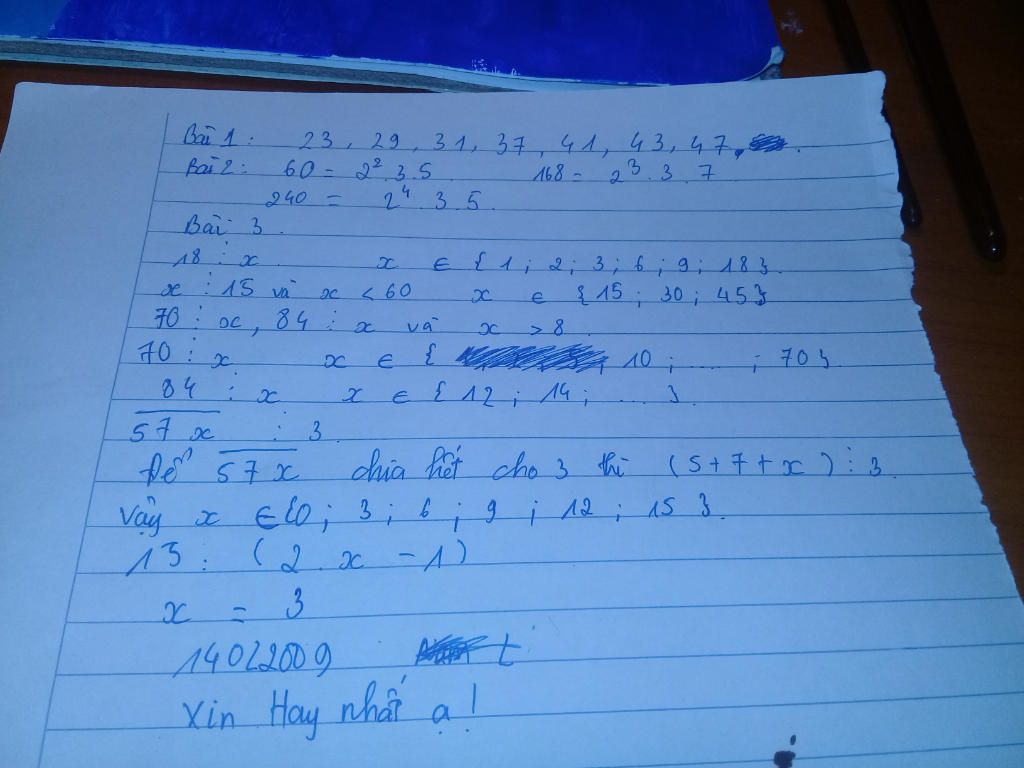 Bài 1: 23, 29, 31, 37, 41, 43, 47,
Bài 2: 60 = 2² . 3 . 5 168 = 2³ . 3 . 7
240 = 2⁴ . 3 . 5
Bài 3.
18 ⋮ x x ∈ { 1 ; 2 ; 3 ; 6 ; 9 ; 18 }.
x ⋮ 15 và x < 60 x ∈ {15 ; 30 ; 45}
70 ⋮ x, 84 ⋮ x và x > 8.
70 ⋮ x x ∈ { 10 ; .... ; 70 }.
84 ⋮ x x ∈ { 12 ; 14 ; .... }.
57x ⋮ 3.
Để 57x chia hết cho 3 thì (5+7+x) ⋮ 3.
Vậy x ∈ {0 ; 3 ; 6 ; 9 ; 12 ; 15 }.
15 : (2 . x - 1)
x = 3
14022009 t
Xin Hay nhất ạ !